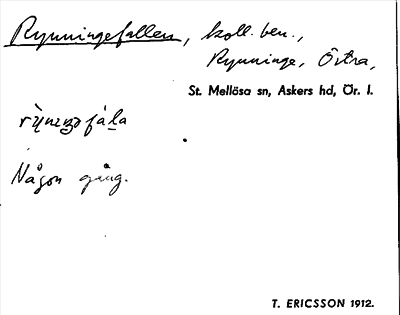 Rynningefallen, koll. ben.,
Rynninge, Östra,
St. Mellösa sn, Askers hd, Ör. l.
Någon gång.
T. ERICSSON 1912.